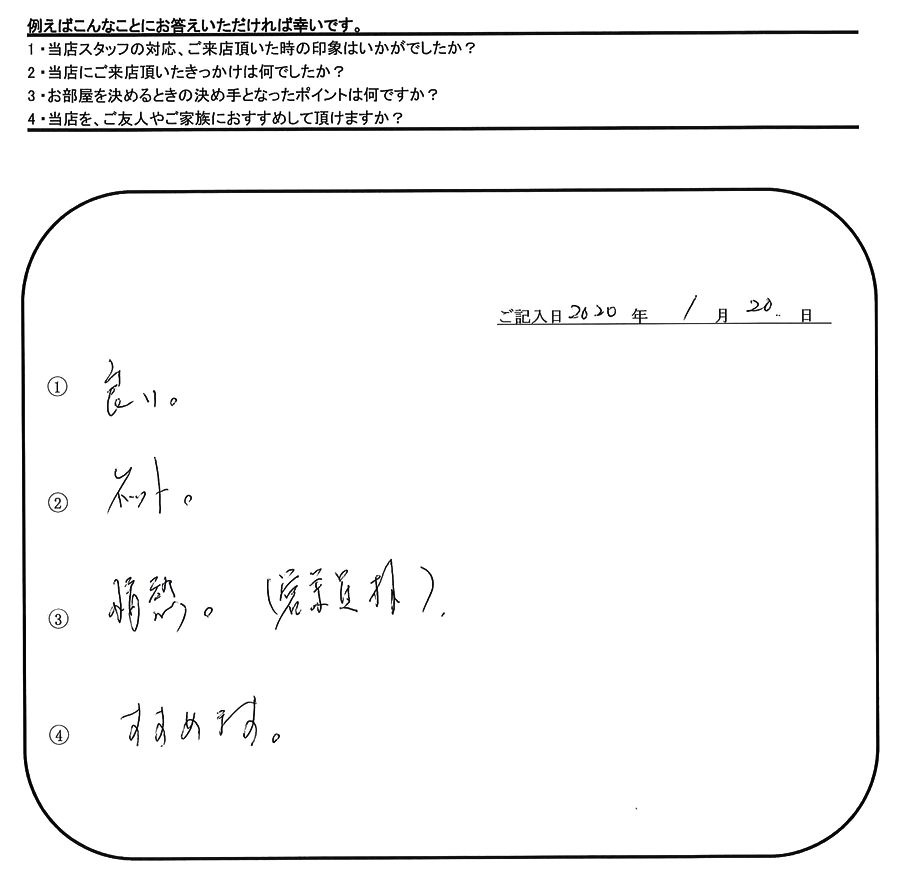 例えばこんなことにお答えいただければ幸いです。
1・当店スタッフの対応、ご来店頂いた時の印象はいかがでしたか？
2・当店にご来店頂いたきっかけは何でしたか？
3・お部屋を決めるときの決め手となったポイントは何ですか？
4・当店を、ご友人やご家族におすすめして頂けますか？
ご記入日 2020 年 1 月 20 日
① 良い。
② ネット。
③ 情熱。 (営業員様).
④ すすめます。